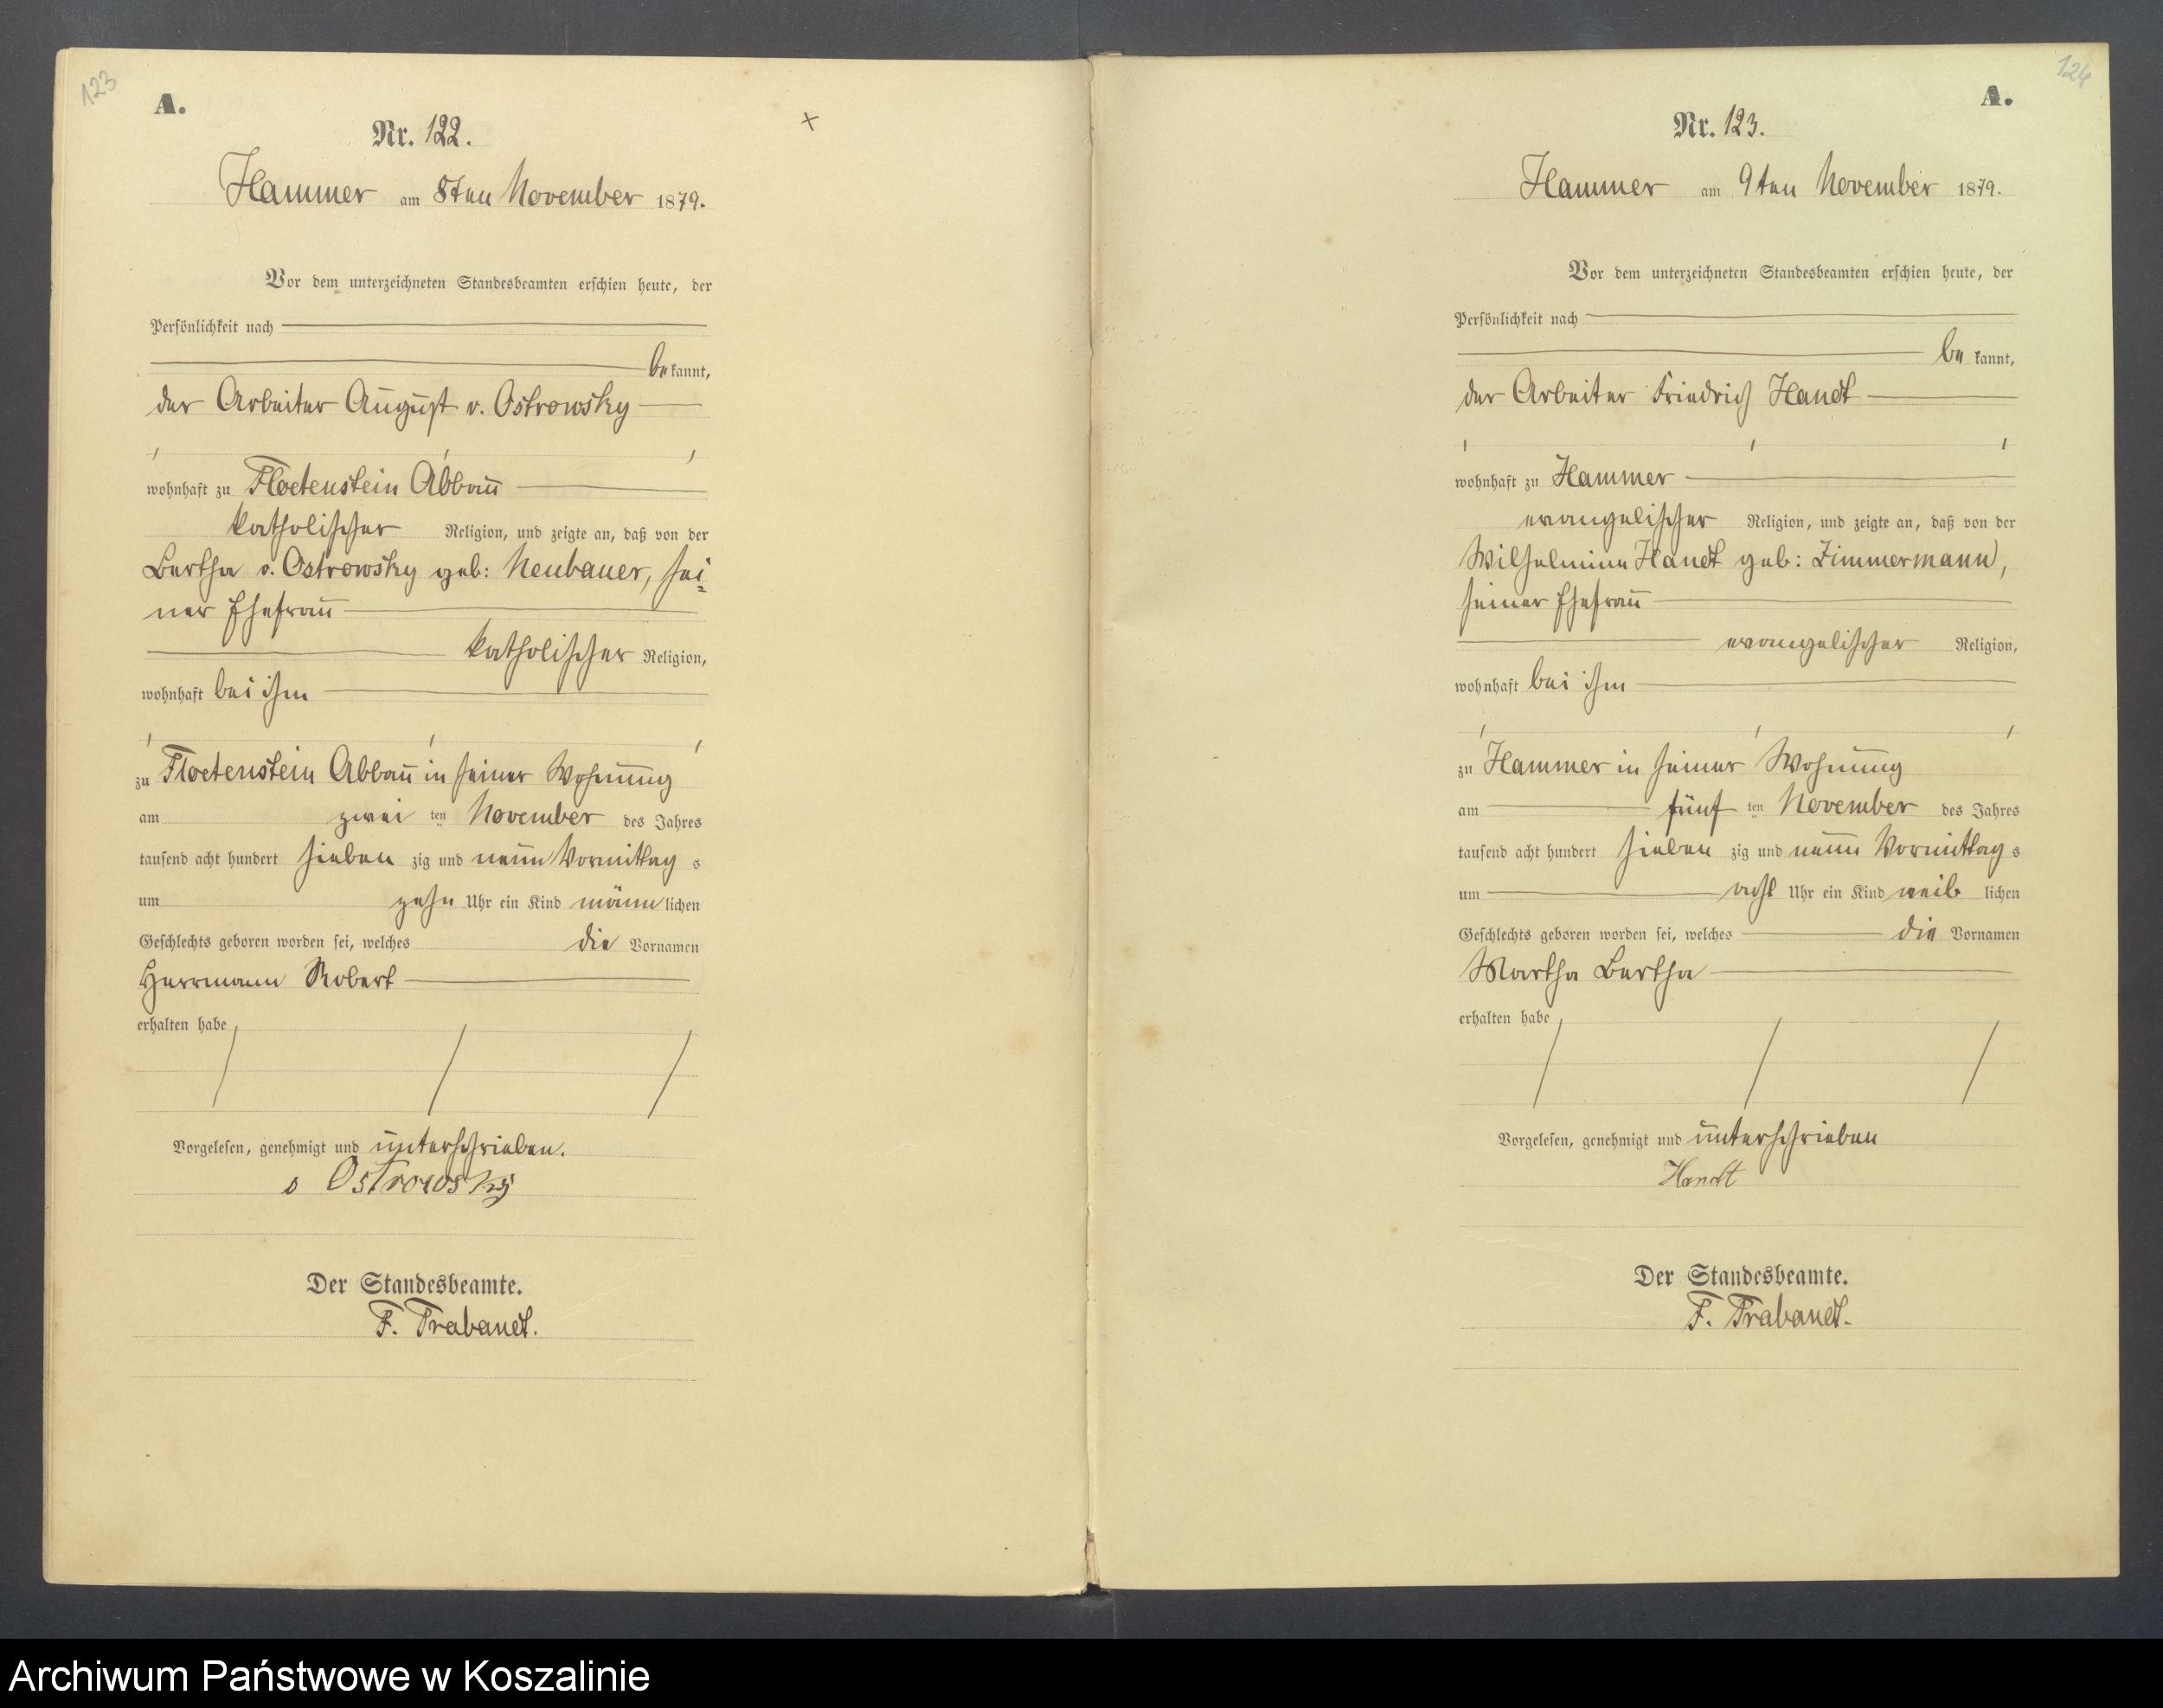 123
A.
Nr. 122.
Hammer am 8ten November 1879.
Vor dem unterzeichneten Standesbeamten erschien heute, der
Persönlichkeit nach
bekannt,
der Arbeiter August v. Ostrowsky
wohnhaft zu Floetenstein Abbau
katholischer Religion, und zeigte an, daß von der
Bertha v. Ostrowsky geb: Neubauer, sei=
ner Ehefrau
katholischer Religion,
wohnhaft bei ihm
zu Floetenstein Abbau in seiner Wohnung
am zwei ten November des Jahres
tausend acht hundert sieben zig und neun Vormittag s
um zehn Uhr ein Kind männlichen
Geschlechts geboren worden sei, welches die Vornamen
Herrmann Robert
erhalten habe
Vorgelesen, genehmigt und unterschrieben.
v Ostrowsky
Der Standesbeamte.
F. Trabandt.
124
A.
Nr. 123.
Hammer am 9ten November 1879.
Vor dem unterzeichneten Standesbeamten erschien heute, der
Persönlichkeit nach
be kannt,
der Arbeiter Friedrich Handt
wohnhaft zu Hammer
evangelischer Religion, und zeigte an, daß von der
Wilhelmine Handt geb: Zimmermann,
seiner Ehefrau
evangelischer Religion,
wohnhaft bei ihm
zu Hammer in seiner Wohnung
am fünf ten November des Jahres
tausend acht hundert sieben zig und neun Vormittag s
um acht Uhr ein Kind weib lichen
Geschlechts geboren worden sei, welches die Vornamen
Martha Bertha
erhalten habe
Vorgelesen, genehmigt und unterschrieben
Handt
Der Standesbeamte.
F. Trabandt.
Archiwum Państwowe w Koszalinie